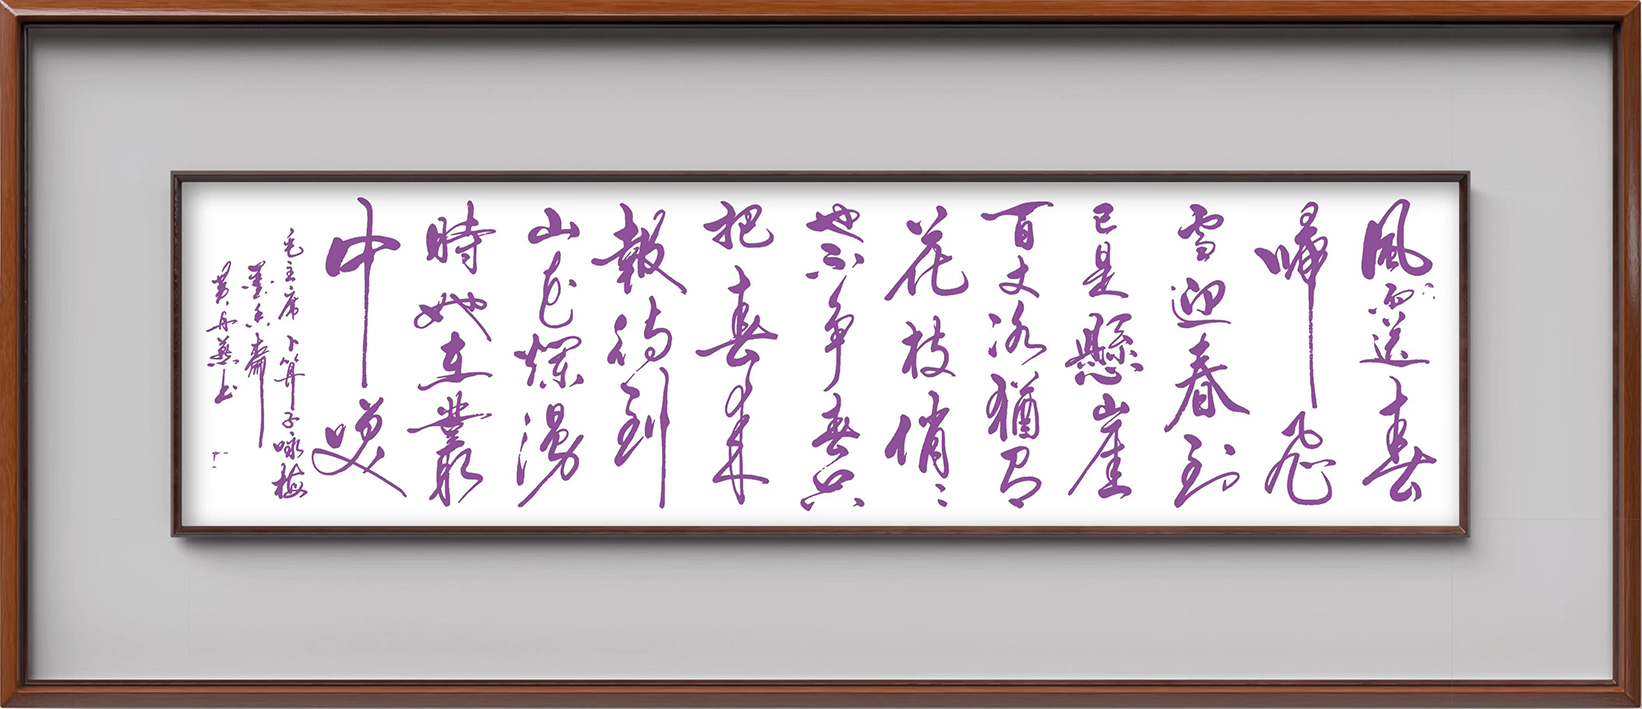 風雨送春
歸飛
雪迎春到
已是懸崖
百丈冰猶有
花枝俏〻
也不争春只
把春来
報待到
山花爛漫
時她在叢
中笑
毛主席 卜算子 咏梅
墨香齋
丹燕书